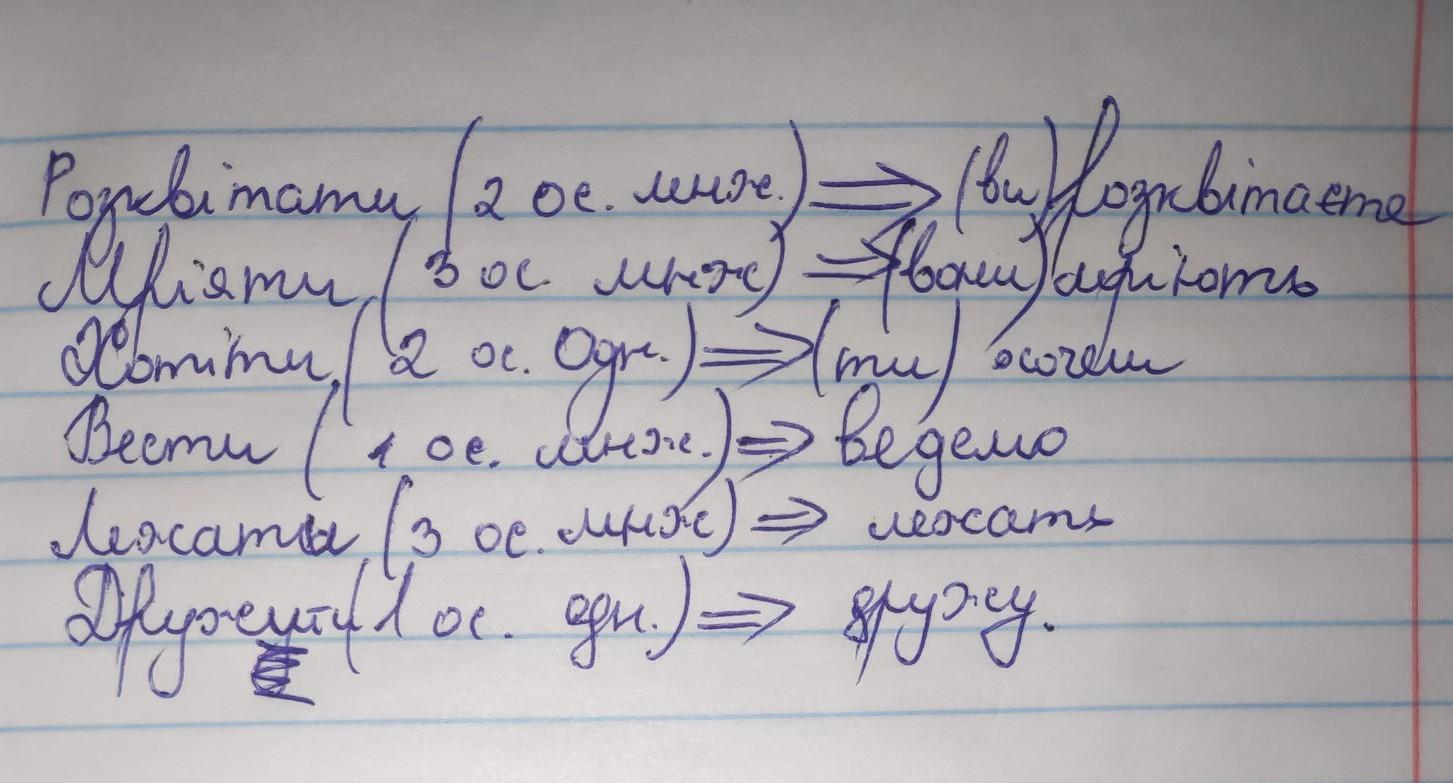 Розквітати (2 ос. множ.) ⇒ (ви) розквітаєте
Мріяти (3 ос. множ) ⇒ (вони) мріють
Хотіти (2 ос. Одн.) ⇒ (ти) хочеш
Вести (1 ос. множ.) ⇒ ведемо
Лежати (3 ос. множ) ⇒ лежать
Дружити (1 ос. одн.) ⇒ дружу.